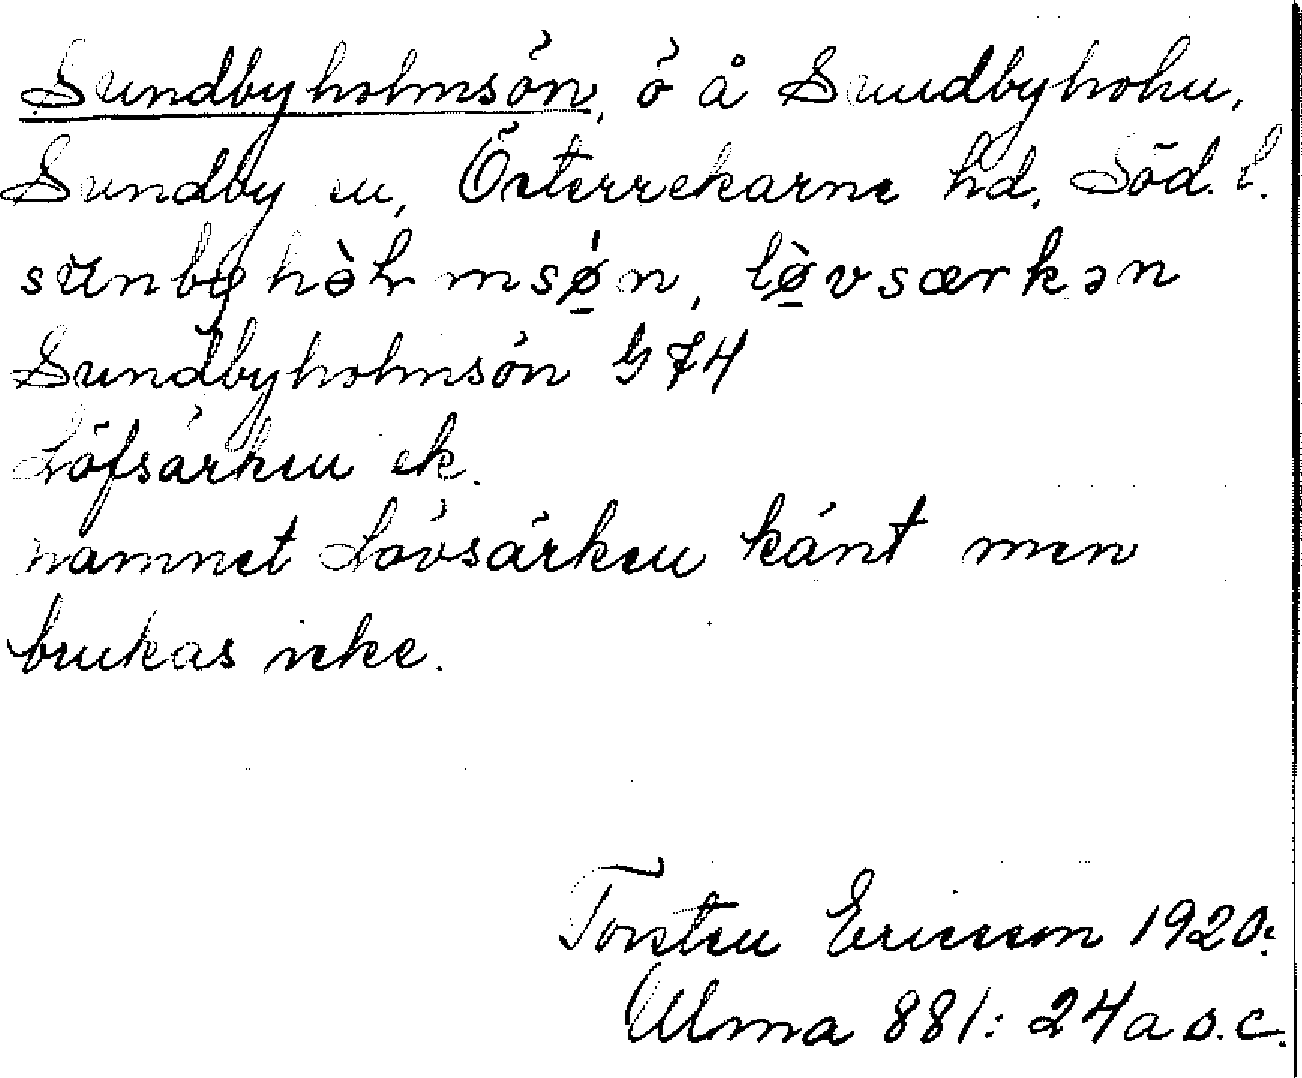 Sundbyholmsön, ö å Sundbyholm,
Sundby sn, Österrekarne hd. Söd. l.
sŭnbyhòlmsǿn, lø̀vsærkən
Sundbyholmsön G 74
Löfsärken ek.
namnet Lövsärken känt men
brukas icke.
Torsten Ericsson 1920.
Ulma 881: 24a s.c.